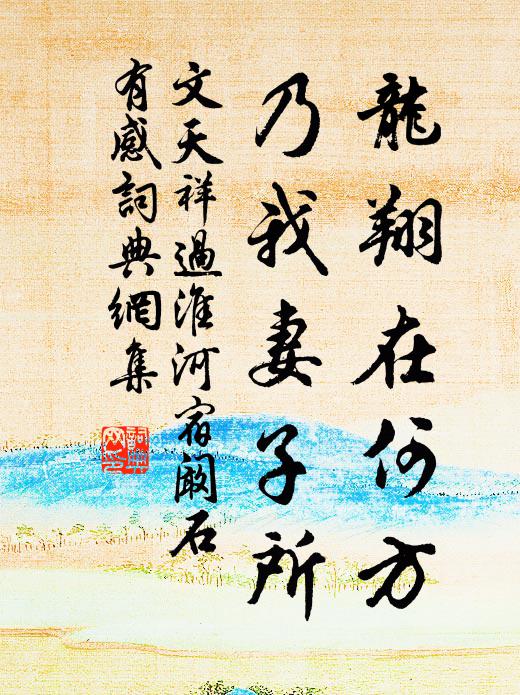 龍翔在何方
乃我妻子所
文天祥過淮河宿闞石
有感詞典網集